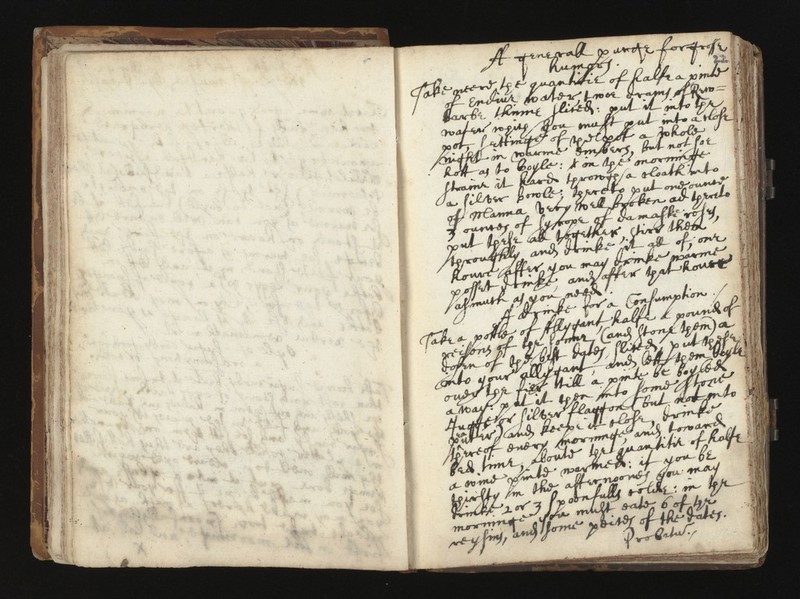 22
A generall purge for grosse
humors.
Take neere the quantitie of halfe a pinte
of Endive water twoe drams of Ru=
barbe thinne sliced: put it into the
water which you must put into a close
pot, settinge of the pot a whole
night in warme embers, but not soe
hott as to boyle: & on the morninge
straine it hard through a cloath into
a silver bowle; thereto put one ounce
of Manna very well broken ad thereto
3 ounces of Syrope of damaske roses,
put these all together, stirr them
throughly and drinke it all of; one
houre after you may drinke warme
posset drinke, and after that houre
asmuch as you need.
A drinke for a Consumption.
Take a pottle of Allygant halfe a pound of
reisons of the sonne (and stone them) a
dosen of the best dates, sliced, put these
into your allygant, and lett them boyle
over the fire till a pinte be boyled
a way: put it then into some stone
Jugge or silver flaggon (but not into
putter) and keepe it close, drinke
thereof every morninge, and toward
bed time, about the quantitie of halfe
a wine pinte warmed: if you be
thirsty in the afternoones you may
drinke 2 or 3 spoonfulls colde: in the
morninge you must eate 6 of the
reysins, and some peices of the dates.
Probatum.